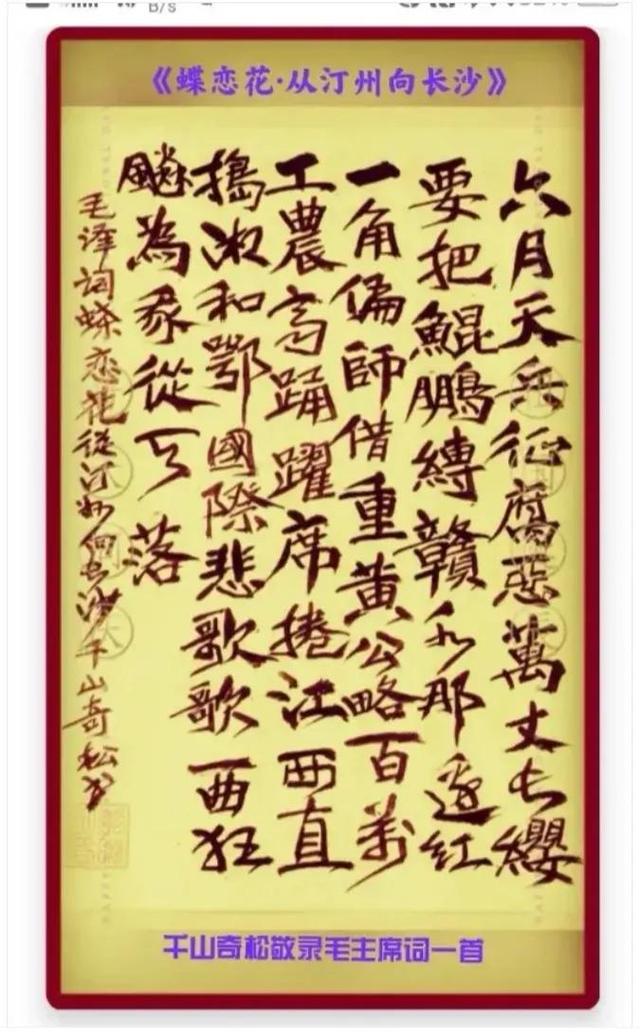 B/s
《蝶恋花·从汀州向长沙》
六月天兵征腐惡萬丈长纓
要把鯤鵬縛贛水那邊紅
一角偏師借重黄公略百萬
工農高踊躍席捲江西直
搗湘和鄂國際悲歌歌一曲狂
飈為我從天落
毛泽词蝶恋花從汀州向长沙千山奇松书
千山奇松敬录毛主席词一首